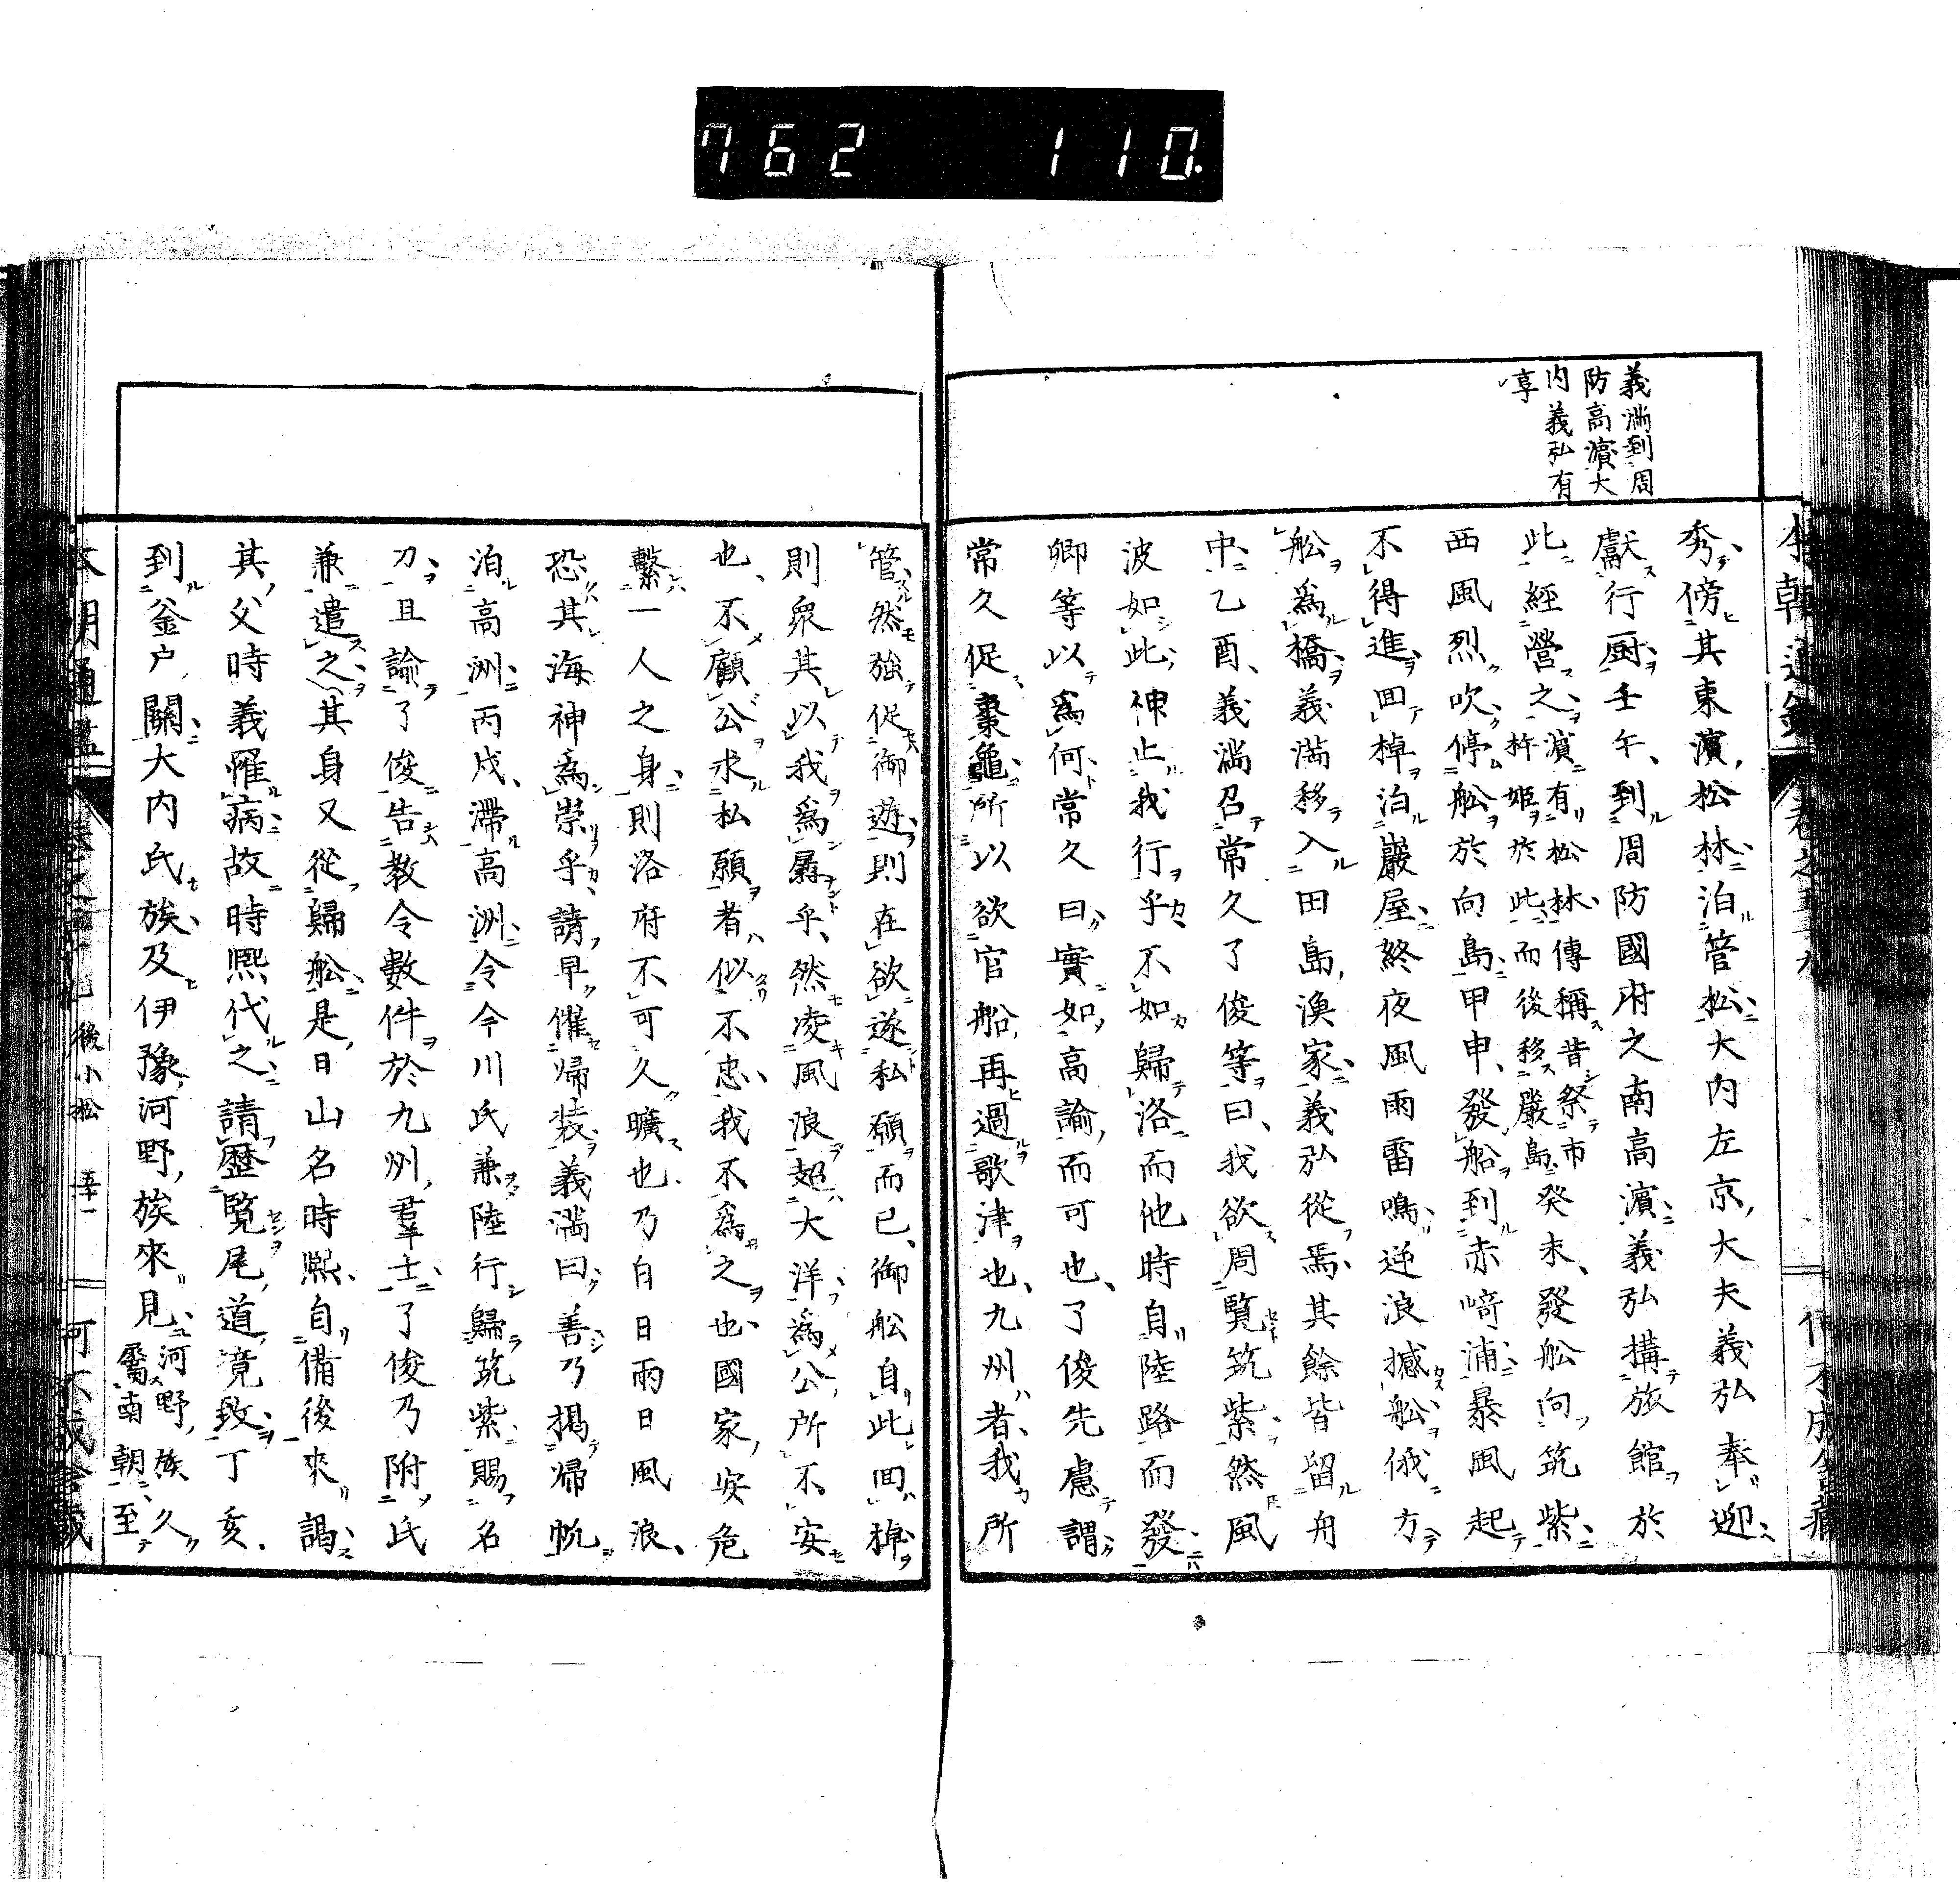 762 110.
義満到周
防高濵大
内義弘有
享
秀傍其東濵松林泊管松大内左京大夫義弘奉迎
獻行厨壬午到周防國府之南高濵義弘構旅館於
此經營之濵有松林傳稱昔祭市杵姫於此而後移嚴島癸未發舩向筑紫
西風烈吹停舩於向島甲申發船到赤﨑浦暴風起
不得進回棹泊巖屋終夜風雨雷鳴逆浪撼舩俄方
舩爲橋義満移入田島漁家義弘從焉其餘皆留舟
中乙酉義満召常久了俊等曰我欲周覧筑紫然風
波如此神止我行乎不如歸洛而他時自陸路而發
卿等以爲何常久曰實如高諭而可也了俊先慮謂
常久促棗龜所以欲官船再過歌津也九州者我所
管然強促御遊則在欲遂私願而已御舩自此回棹
則衆其以我爲孱乎然凌風浪超大洋爲公所不安
也不顧公求私願者似不忠我不爲之也國家安危
繫一人之身則洛府不可久曠也乃白日雨日風浪
恐其海神爲崇乎請早催帰装義満曰善乃揭帰帆
泊高洲丙戌滞高洲令今川氏兼陸行歸筑紫賜名
刀且諭了俊告教令數件於九州羣士了俊乃附氏
兼遣之其身又從歸舩是日山名時熙自備後來謁
其父時義罹病故時熙代之請歴覧尾道竟致丁亥
到釜戸關大内氏族及伊豫河野族來見河野族久屬南朝至
本朝通鑑 後小松 五十一